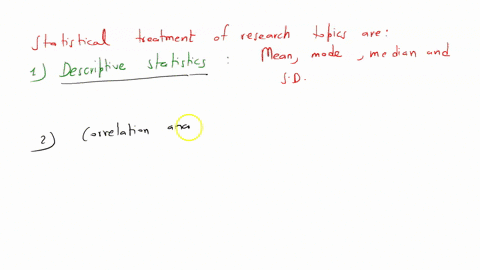 Statistical treatment of research topics are:
1) Descriptive statistics : Mean, mode, median and
S.D.
2) Correlation ana